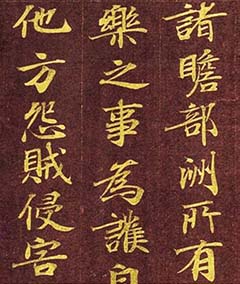 諸贍部洲所有
樂之事為誰自
他方怨賊侵害